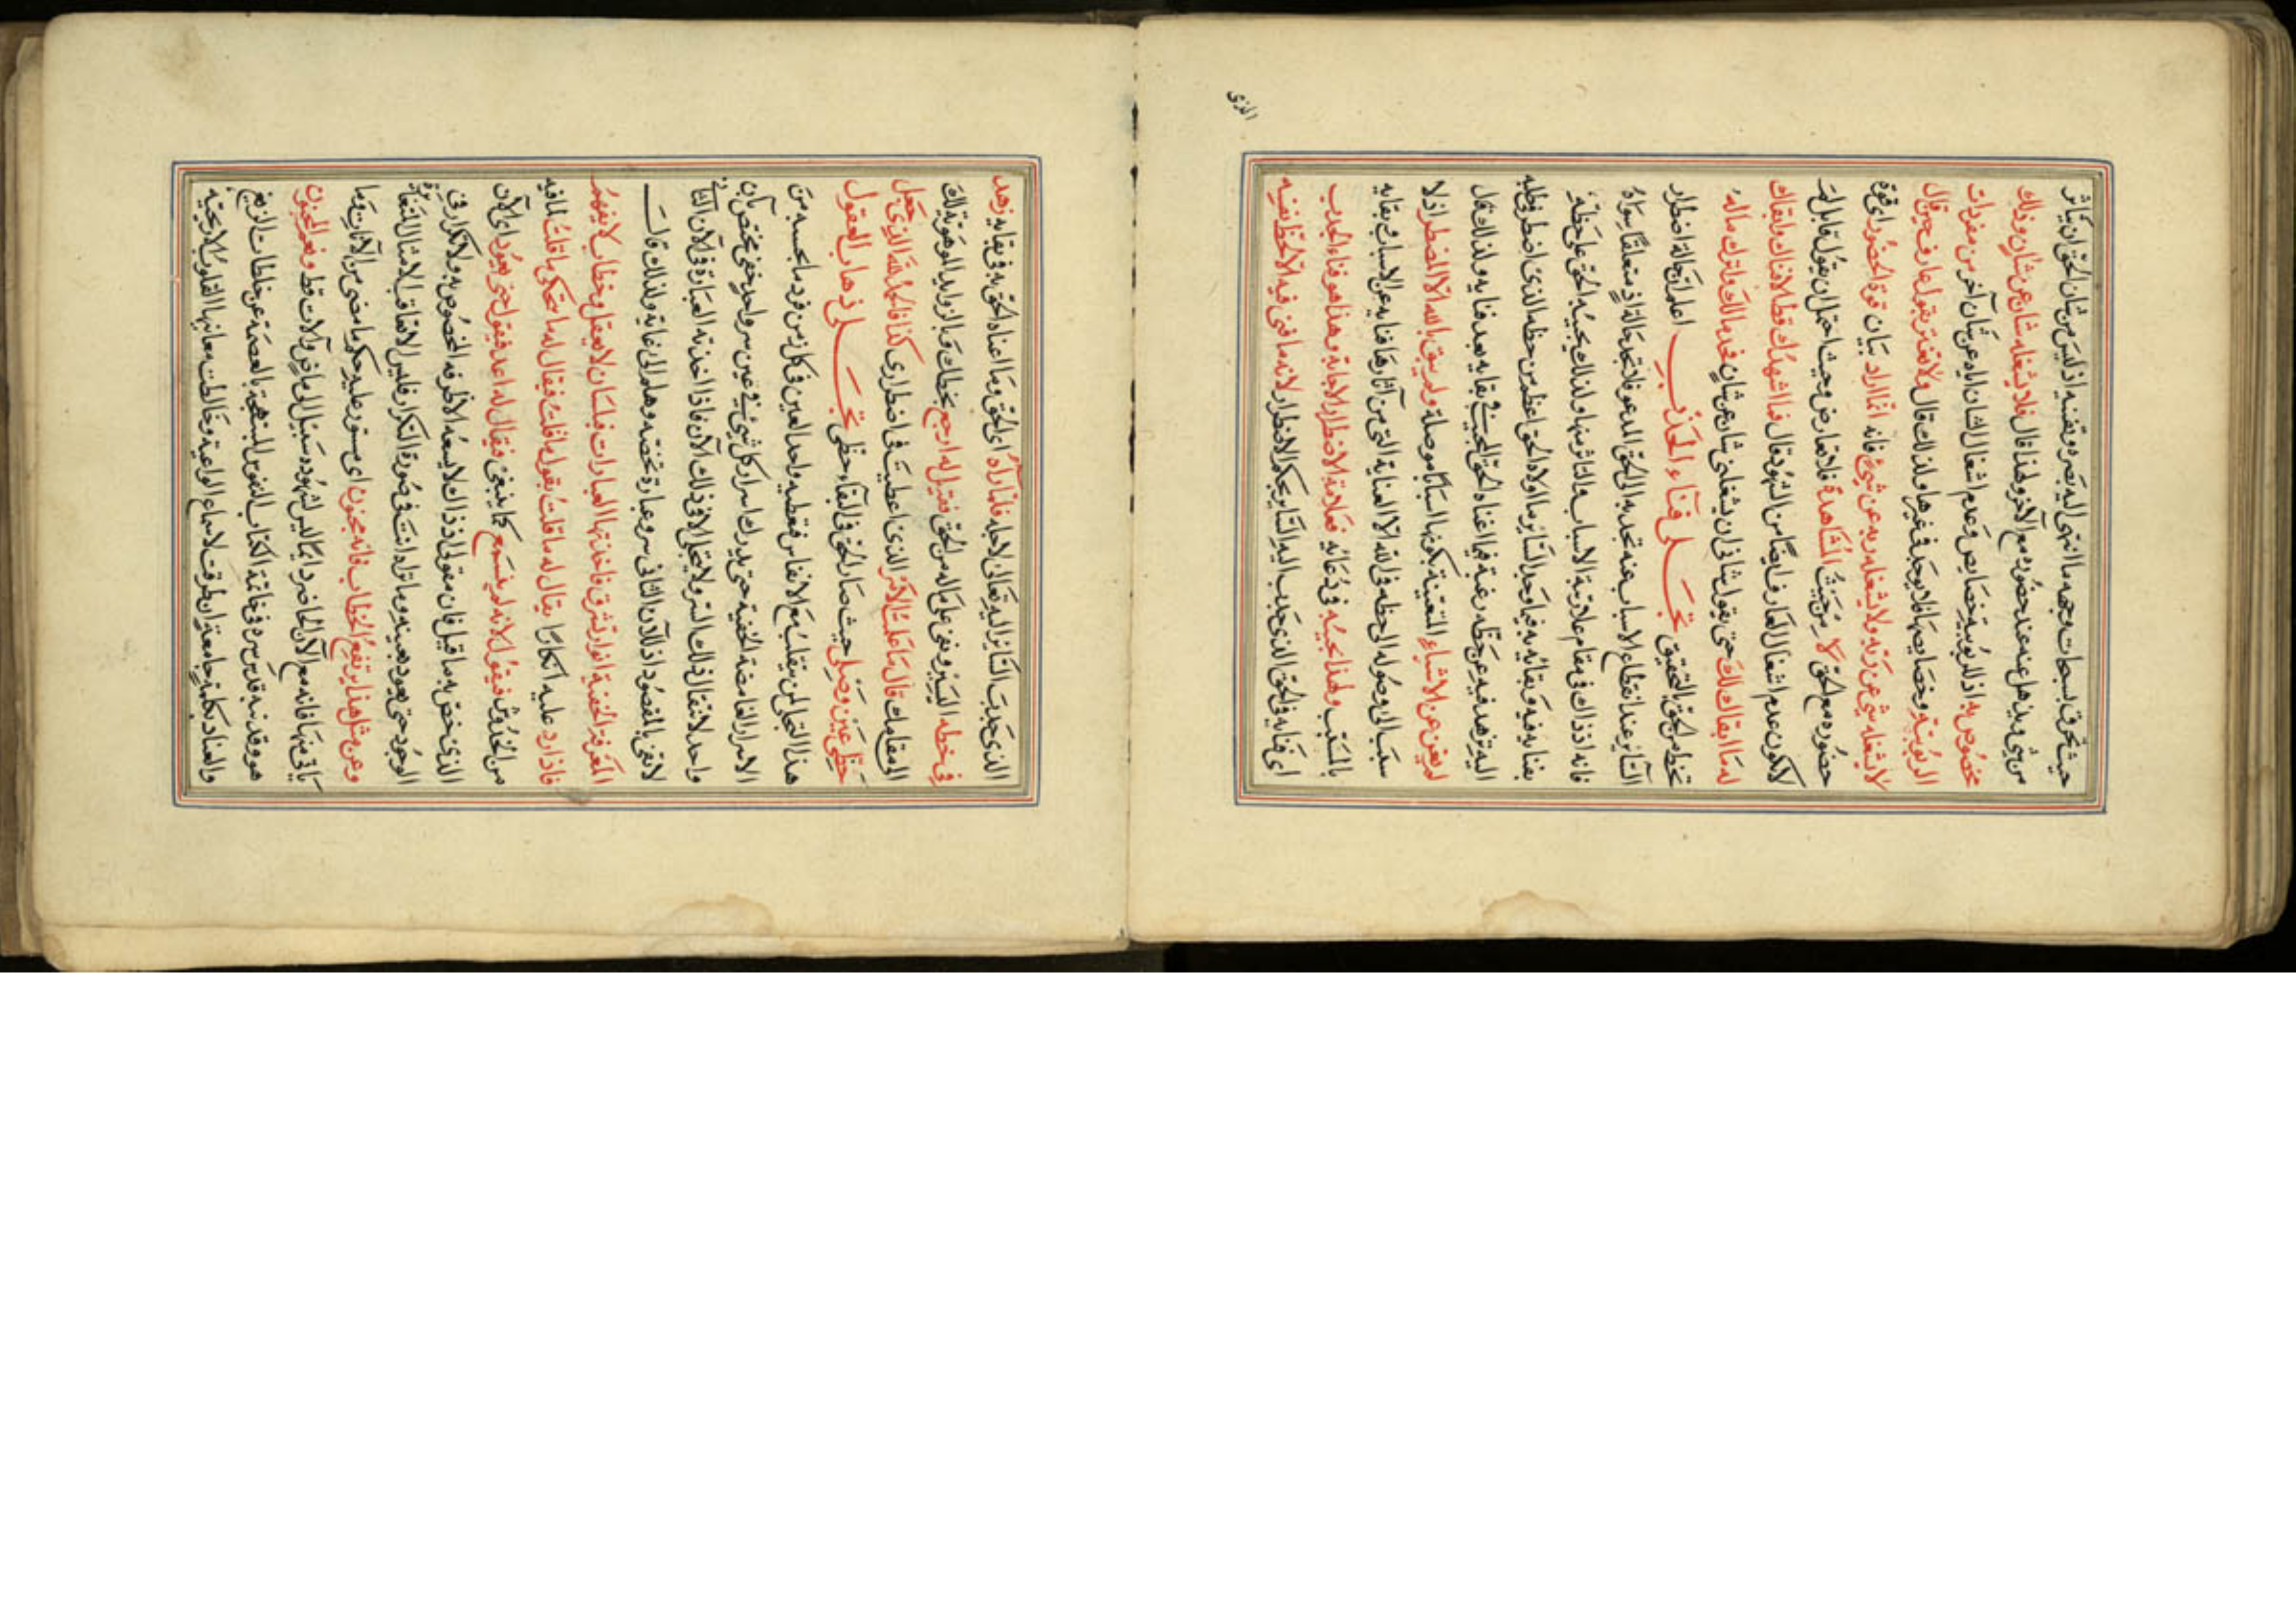 حيث تحرق سبحات وجهه ما انتهى اليه بصره وتفنيه اذ ليس من شان الحق ان يكاثر
من شئ ويذهل عنه عند حضوره مع الآخر ولهذا قال فلا يشغله شان عن شان وذلك
مخصوص به اذ للربوبية خصايص وعدم اشتغال الشان اياه عن شان آخر من مفردات
الربوبية وخصايصها فلا يوجد في غيرها ولذلك قال ولا تغتر بقول عارف حين قال
لا يشغله شئ عن ربه ولا يشغله ربه عن شئ فانه انما اراد بيان قوة الحضور اى قوة
حضوره مع الحق لا من حيث المشاهدة فلا تعارض وحيث احتمل ان يقول قابل لم
لا يكون عدم اشتغال العارف ايضا من الشهود قال فما اشهدك قط الا افناك ولا ابقاك
له ما ابقاك لك حتى يقول شانى ان يشغلنى شان عن شان فخذ مالك واترك ماله
تحظ من الحق بالتحقيق تجلى فناء الجذب اعلم ان حالة اضطرار
السائر عند انقطاع الاسباب عنه تجذبه الى الحق المدعو فلا تجد حالتئذ متعلقا سواه
فانه اذ ذاك في مقام علا رتبة الاسباب والتاثر منها ولذلك يجيبه الحق على حظه
بفنائه فيه وبقائه به فيما وجد السائر ما اولاه الحق اعظم من حظه الذى اضطر في طلبه
اليه زهد فيه عن حظه رغبة فيما اغناه الحق المجيب في بقايه بعد فنايه ولذلك قال
لم يغن عن الاشياء المتعينة بكونها اسبابا موصلة ولم يبق بالله الا المضطر اذ لا
سبب الى وصوله الى حظه في الله الا العناية التى من آثارها فنايه عن الاسباب بقايه
بالمسبب ولهذا يجيبه في دعائه فعلامة الاضطرار الاجابة وهذا هو فناء الجذب
اى فنايه في الحق الذى جذب اليه السائر بحكم الاضطرار لانه ما فنى فيه الا لحظ نفسه
الذى
الذى جذب السائر اليه تعالى لاجله فلما رآه اى الحق وما اغناه الحق به في بقايه زهد
في حظه اليسير وبقى على ماله من الحق فقيل له ارجع بحظك فبالزوايد الموهوبة لك
الى مقامك قال ما علمت الامر الذى اعطيت في اضطرارى كذا فالحمد لله الذى جعل
حظى عين وصلى حيث صار الحق في البقاء حظى تجلى ذهاب العقول
هذا التجلى لمن يتقلب مع الانفاس فيعطيه واحد العين في كل زمن فرد ما بحسبه من
الاسرار الغامضة الخفية حتى يدرك اسرار كل شئ في عين سر واحد خفى مختص بآن
واحد لا ينتقال في ذلك السر ولا يتجلى الا في ذلك الآن فاذا اخذته العبارة في الآن الثانى
لا تفى بالمقصود اذ للآن الثانى سر وعبارة تخصه وهلم الى غاية ولذلك قال
المعرفة الخفية انوار تشرق فاخذتها العبارات فبلسان لا يعقل وخطاب لا يفهم
فاذا رد عليه انكارا يقال له ما قلت يقول ما قلت فيقال له ما تحكى ما قلت لما فيه
من الخدوش فيقول لانه لم يسمع كما ينبغى فيقال له اعد فيقول حتى يعود اى الآن
الذى خص به ما قيل فان مقولى اذ ذاك لا يسعه الا ظرفه المخصوص به ولا تكرار في
الوجود حتى يعود بعينه وما تراه انت في صورة التكرار فليس الا تعاقب الامثال المتغايرة
وعن مثل هذا يرتفع الخطاب فانه مجنون اى مستور عليه حكم ما مضى من الآنات وما
ياتى منها فانه مع الآن الحاضر دايما ليس لشهوده سبيل الى ماض وآت قط ونعم المجنون
هو وقد نبه قدس سره في خاتمة الكتاب النفوس المبتهجة بالعصمة عن خلطات الزيغ
والعناد بكلمة جامعة ان طرقت الاسماع الواعية وخالطت معانيها القلوب الاريحية